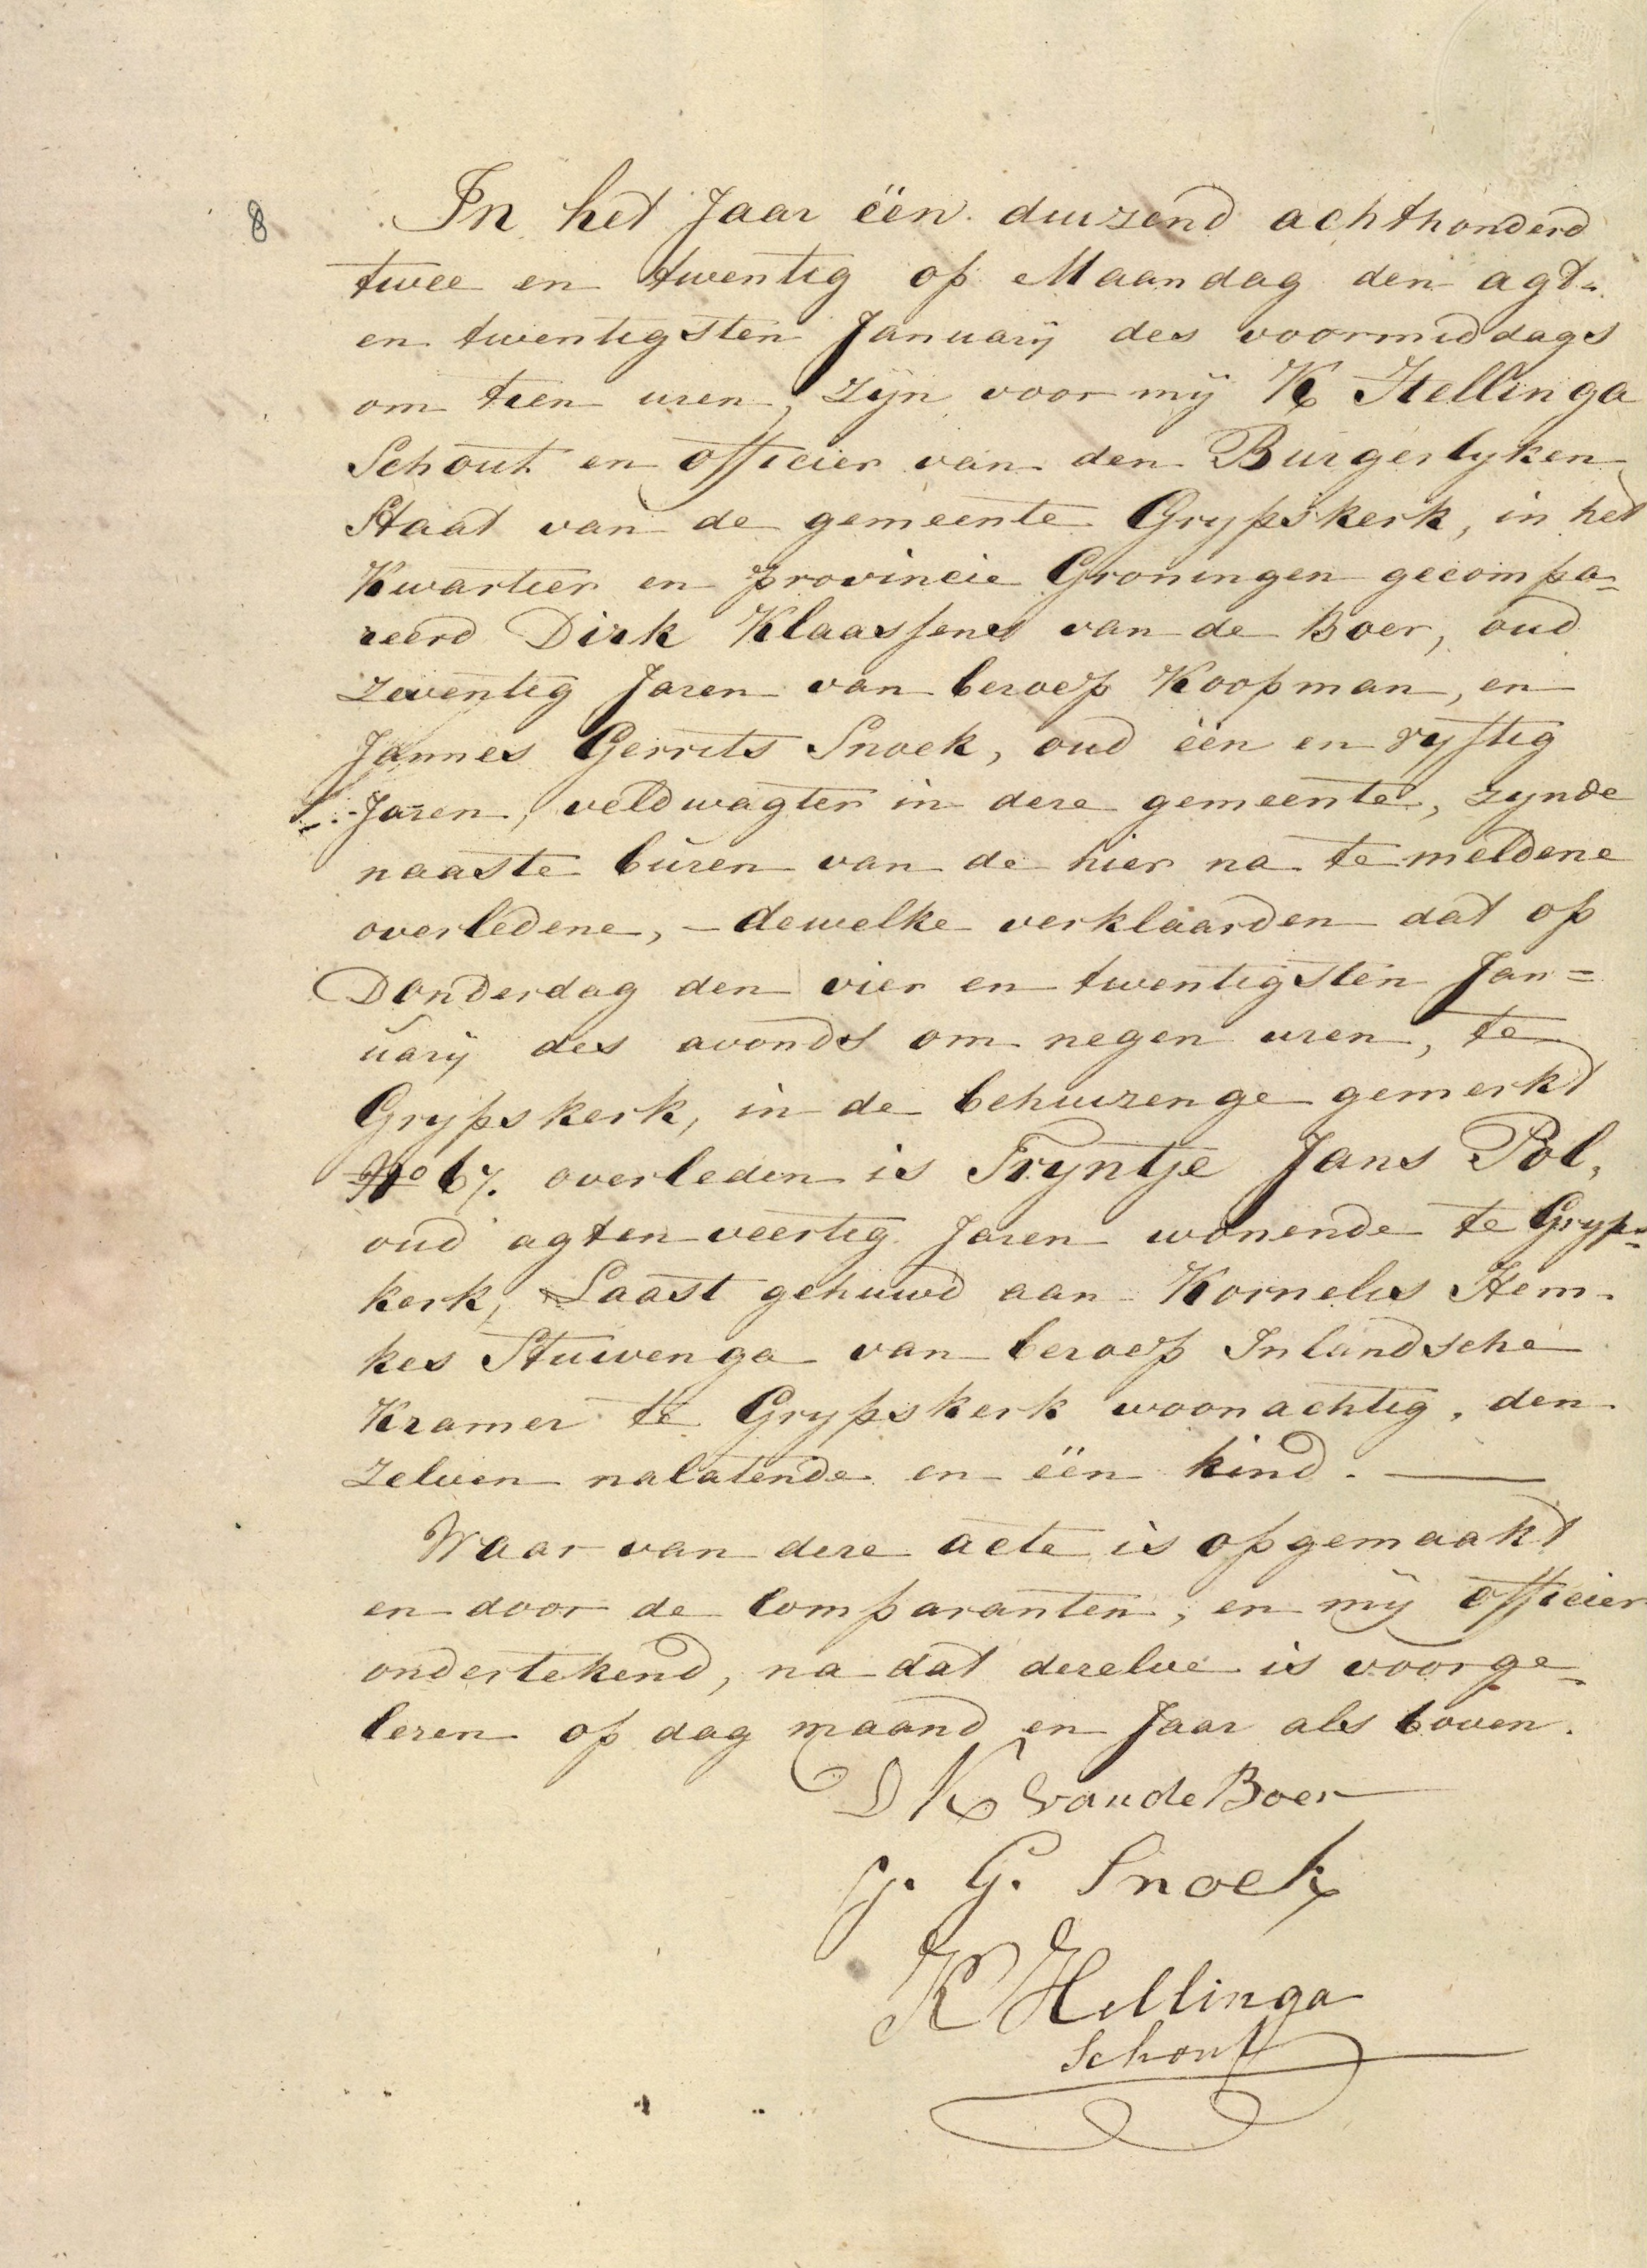 8
In het Jaar ëën duizend achthonderd
twee en twentig op Maandag den agt-
en twentigsten January des voormiddags
om tien uren, zyn voor mij K Hellinga
Schout en officier van den Burgerlyken
Staat van de gemeente Grypskerk, in het
Kwartier en provincie Groningen gecompa-
reerd Dirk Klaassens van de Boer, oud
zeventig Jaren van beroep Koopman, en
Jannes Gerrits Snoek, oud ëën en vyftig
Jaren, veldwagter in deze gemeente, zynde
naaste buren van de hier na te meldene
overledene, - dewelke verklaarden dat op
Donderdag den vier en twentigsten Jan=
uarij des avonds om negen uren, te
Grypskerk, in de behuizenge gemerkt
No 67. overleden is Tryntje Jans Pol,
oud agt en veertig Jaren wonende te Gryps-
kerk, Laast gehuwd aan Kornelis Hem-
kes Stuivenga van beroep Inlandsche
Kramer te Grypskerk woonachtig, den
zelven nalatende en ëën kind.
Waar van deze acte is opgemaakt
en door de Comparanten, en mij officier
ondertekend, na dat dezelve is voorge-
lezen op dag maand en Jaar als boven.
D K van de Boer
J. G. Snoek
K Hellinga
Schout